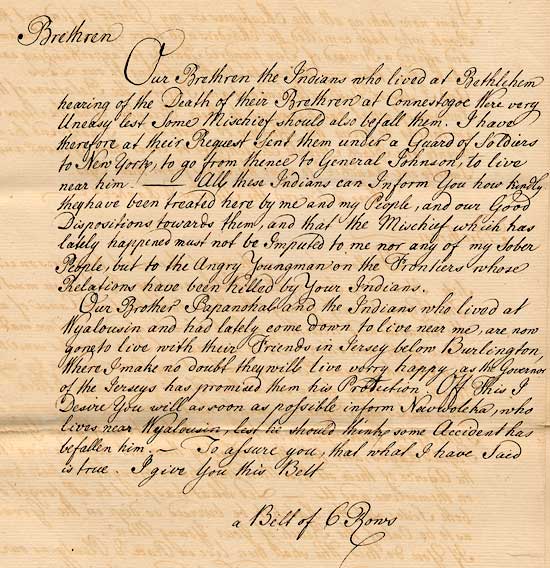 Brethren
Our Brethren the Indians who lived at Bethlehem
hearing of the Death of their Brethren at Connestogoe Were very
Uneasy lest Some Mischief should also befall them. I have
therefore at their Request Sent them under a Guard of Soldiers
to New York, to go from thence to General Johnson, to live
near him. — All these Indians can Inform You how kindly
they have been treated here by me and my People, and our Good
Dispositions towards them, and that the Mischief which has
lately happened must not be Imputed to me nor any of my Sober
People, but to the Angry Youngman on the Frontiers whose
Relations have been killed by Your Indians.
Our Brother Papanohal and the Indians who lived at
Wyalousin and had lately come down to live near me, are now
gone to live with their Friends in Jersey below Burlington,
Where I make no doubt they will live very happy, as the Governor
of the Jerseys has promised them his Protection. Off This I
Desire You will as soon as possible inform who
lives near Wyalousin, lest he should think some Accident has
befallen him. — To assure you, that what I have Said
is true. I give You this Belt
a Belt of 6 Rows